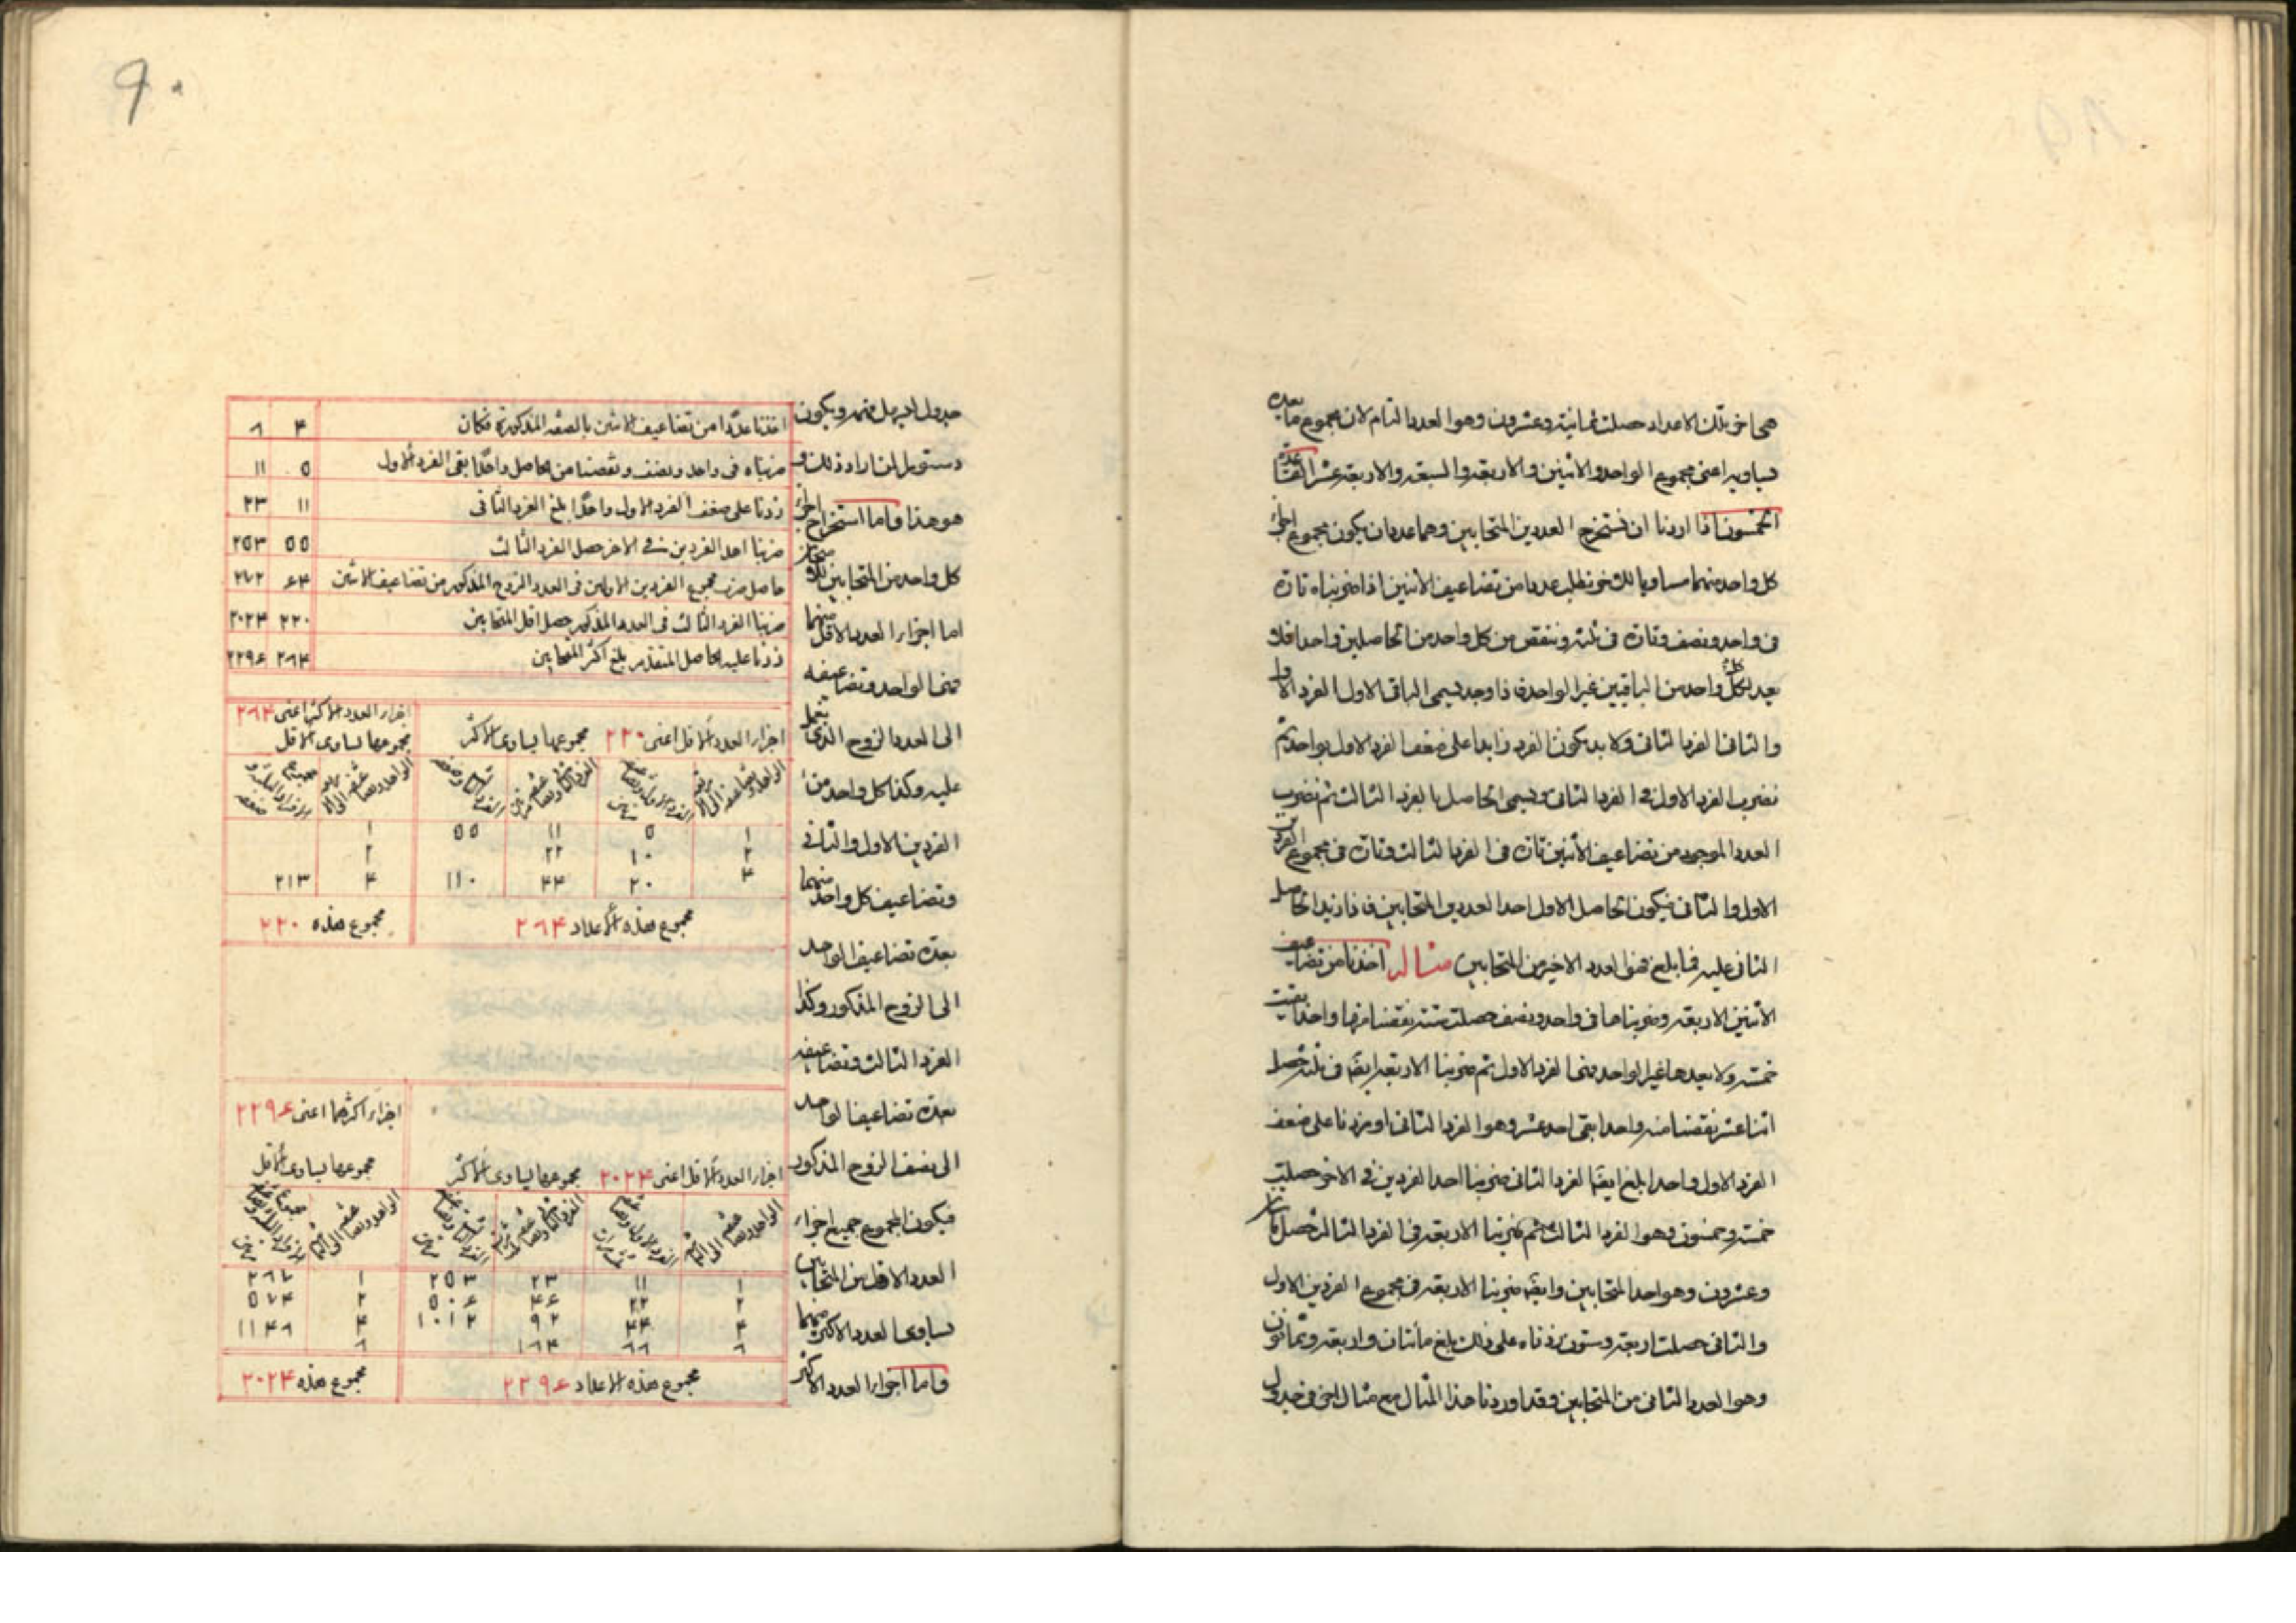 هي اخر تلك الاعداد حصلت ثمانية وعشرون وهو العدد التام لان مجموع ما يعده
يساويه اعنى مجموع الواحد والاثنين والاربعة والسبعة والاربعة عشر القاعدة
الخمسون اذا اردنا ان نستخرج العددين المتحابين وهما عددان يكون مجموع اجزاء
كل واحد منهما مساويا للاخر نطلب عددا من تضاعيف الاثنين اذا ضربناه تارة
فى واحد ونصف وتارة فى ثلثة وننقص من كل واحد من الحاصلين واحدا فلا
يعد كل واحد من الباقيين غير الواحد فاذا وجد يسمى الباقى الاول الفرد الاول
والثانى الفرد الثانى ولا بد يكون الفرد زايدا على ضعف الفرد الاول بواحد ثم
نضرب الفرد الاول فى الفرد الثانى ويسمى الحاصل بالفرد الثالث ثم نضرب
العدد الموجود من تضاعيف الاثنين تارة فى الفرد الثالث وتارة فى مجموع الفردين
الاول والثانى فيكون الحاصل الاول احد العددين المتحابين فاذا زيد الحاصل
الثانى عليه فما بلغ فهو العدد الاخير من المتحابين مثاله اخذنا من تضاعيف
الاثنين الاربعة وضربناها فى واحد ونصف حصلت ستة نقصنا منها واحدا بقيت
خمسة ولا يعدها غير الواحد فهو الفرد الاول ثم ضربنا الاربعة ايضا فى ثلثة حصل
اثنا عشر نقصنا منه واحدا بقى احد عشر وهو الفرد الثانى او زدنا على ضعف
الفرد الاول واحدا بلغ ايضا الفرد الثانى ضربنا احد الفردين فى الاخر حصلت
خمسة وخمسون وهو الفرد الثالث ثم ضربنا الاربعة فى الفرد الثالث حصل مأتان
وعشرون وهو احد المتحابين وايضا ضربنا الاربعة فى مجموع الفردين الاول
والثانى حصلت اربعة وستون زدناه على ذلك بلغ مأتان واربعة وثمانون
وهو العدد الثانى من المتحابين وقد اوردنا هذا المثال مع مثال اخر فى جدول
٩٠
جدول ويكون
دستورا لمن اراد ذلك و
هو هذا واما استخراج اجزاء
كل واحد من المتحابين
اما اجزاء العدد الاقل منهما
فهما الواحد وتضاعيفه
الى العدد الزوج الذى
عليه وكذا كل واحد من
الفردين الاول والثانى
وتضاعيف كل واحد منهما
بعدة تضاعيف الواحد
الى الزوج المذكور وكذا
الفرد الثالث وتضاعيفه
بعدة تضاعيف الواحد
الى نصف الزوج المذكور
فيكون المجموع جميع اجزاء
العدد الاقل من المتحابين
يساوى العدد الاكثر منهما
واما اجزاء العدد الاكثر
اخذنا عددا من تضاعيف الاثنين بالصفة المذكورة فكان ۴ ٦
ضربناه فى واحد ونصف ونقصنا من الحاصل واحدا بقى الفرد الاول ٥ ١١
زدنا على ضعف الفرد الاول واحدا بلغ الفرد الثانى ١١ ٢٣
ضربنا احد الفردين فى الاخر حصل الفرد الثالث ٥٥ ٢٥٣
حاصل ضرب مجموع الفردين الاولين فى العدد الزوج المذكور من تضاعيف الاثنين ۶۴ ٢٧٢
ضربنا الفرد الثالث فى العدد المذكور حصل اقل المتحابين ٢٢٠ ٢٠٢۴
زدنا عليه الحاصل المتقدم بلغ اكثر المتحابين ٢٦۴ ٢٢٩۶
اجزاء العدد الاقل اعنى ٢٢٠ مجموعها يساوى الاكثر
اجزاء العدد الاكثر اعنى ٢٦۴
مجموعها يساوى الاقل
١ ٥ ١١ ٥٥ ١
٢ ١٠ ٢٢ ٢
۴ ٢٠ ۴۴ ١١٠ ۴ ٢١٣
مجموع هذه الاعداد ٢٦۴ مجموع هذه ٢٢٠
اجزاء اكثرهما اعنى ٢٢٩۶
مجموعها يساوى الاقل
اجزاء العدد الاقل اعنى ٢٠٢۴ مجموعها يساوى الاكثر
١ ١١ ٢٣ ٢٥٣ ١
٢ ٢٢ ۴۶ ٥٠۶ ٢ ٥٧۴
۴ ۴۴ ٩٢ ١٠١٢ ۴ ١١۴٦
٦ ٦٦ ١٦۴ ٦
مجموع هذه الاعداد ٢٢٩۶ مجموع هذه ٢٠٢۴